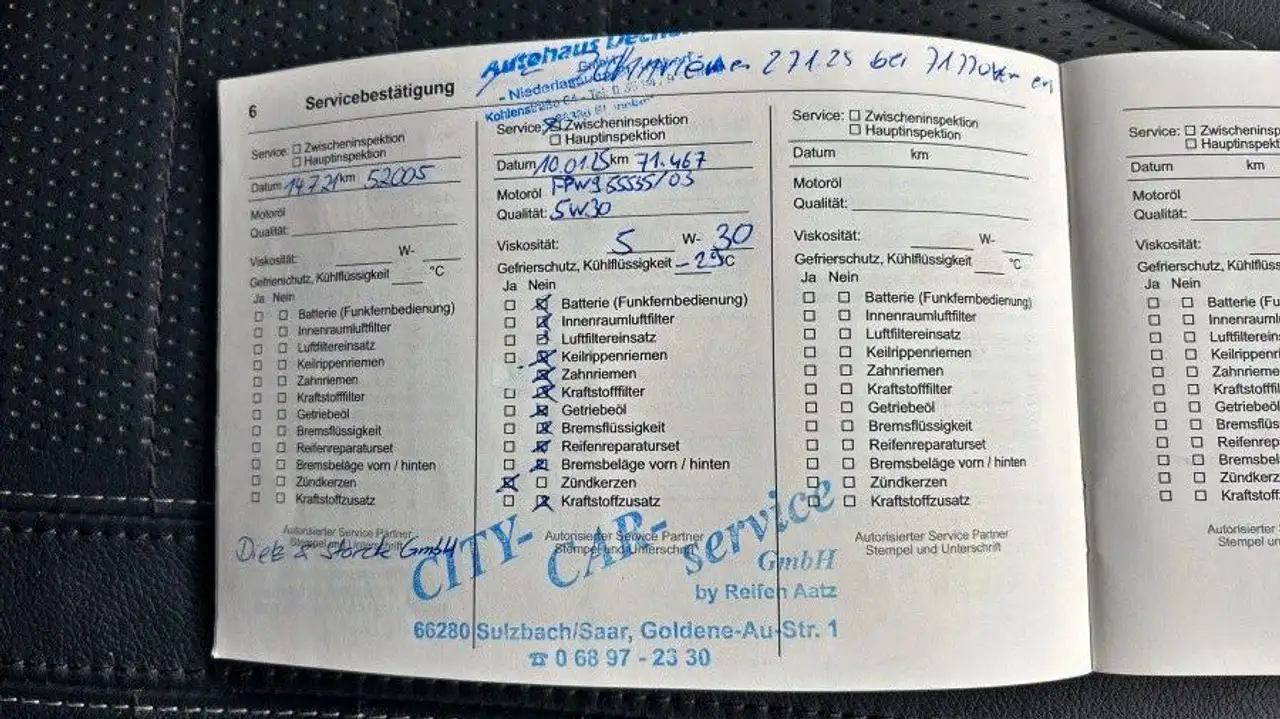 6 Servicebestätigung
Autohaus
- Niederlassu
Kohlenstraße 64 - Tel. 0
27.1.25 bei
Service: Zwischeninspektion
Hauptinspektion
Datum 14.7.21 km 52005
Motoröl
Qualität:
Viskosität: W-
Gefrierschutz, Kühlflüssigkeit °C
Ja Nein
Batterie (Funkfernbedienung)
Innenraumluftfilter
Luftfiltereinsatz
Keilrippenriemen
Zahnriemen
Kraftstofffilter
Getriebeöl
Bremsflüssigkeit
Reifenreparaturset
Bremsbeläge vorn / hinten
Zündkerzen
Kraftstoffzusatz
Autorisierter Service Partner
Stempel und Unterschrift
Dietz & Storck GmbH
Service: Zwischeninspektion
Hauptinspektion
Datum 10.01.25 km 71.467
Motoröl FPW9.55535/03
Qualität: 5W30
Viskosität: 5 W- 30
Gefrierschutz, Kühlflüssigkeit -25C
Ja Nein
Batterie (Funkfernbedienung)
Innenraumluftfilter
Luftfiltereinsatz
Keilrippenriemen
Zahnriemen
Kraftstofffilter
Getriebeöl
Bremsflüssigkeit
Reifenreparaturset
Bremsbeläge vorn / hinten
Zündkerzen
Kraftstoffzusatz
Autorisierter Service Partner
Stempel und Unterschrift
Service: Zwischeninspektion
Hauptinspektion
Datum km
Motoröl
Qualität:
Viskosität: W-
Gefrierschutz, Kühlflüssigkeit °C
Ja Nein
Batterie (Funkfernbedienung)
Innenraumluftfilter
Luftfiltereinsatz
Keilrippenriemen
Zahnriemen
Kraftstofffilter
Getriebeöl
Bremsflüssigkeit
Reifenreparaturset
Bremsbeläge vorn / hinten
Zündkerzen
Kraftstoffzusatz
Autorisierter Service Partner
Stempel und Unterschrift
CITY-CAR-service
GmbH
by Reifen Aatz
66280 Sulzbach/Saar, Goldene-Au-Str. 1
☎ 0 68 97 - 23 30
Service: Zwischeninsp
Hauptinspekt
Datum km
Motoröl
Qualität:
Viskosität:
Gefrierschutz, Kühlflüss
Ja Nein
Batterie (Fu
Innenrauml
Luftfilterein
Keilrippenr
Zahnrieme
Kraftstofffil
Getriebeöl
Bremsflüs
Reifenrep
Bremsbel
Zündkerz
Kraftstoff
Autorisierter
Stempel un